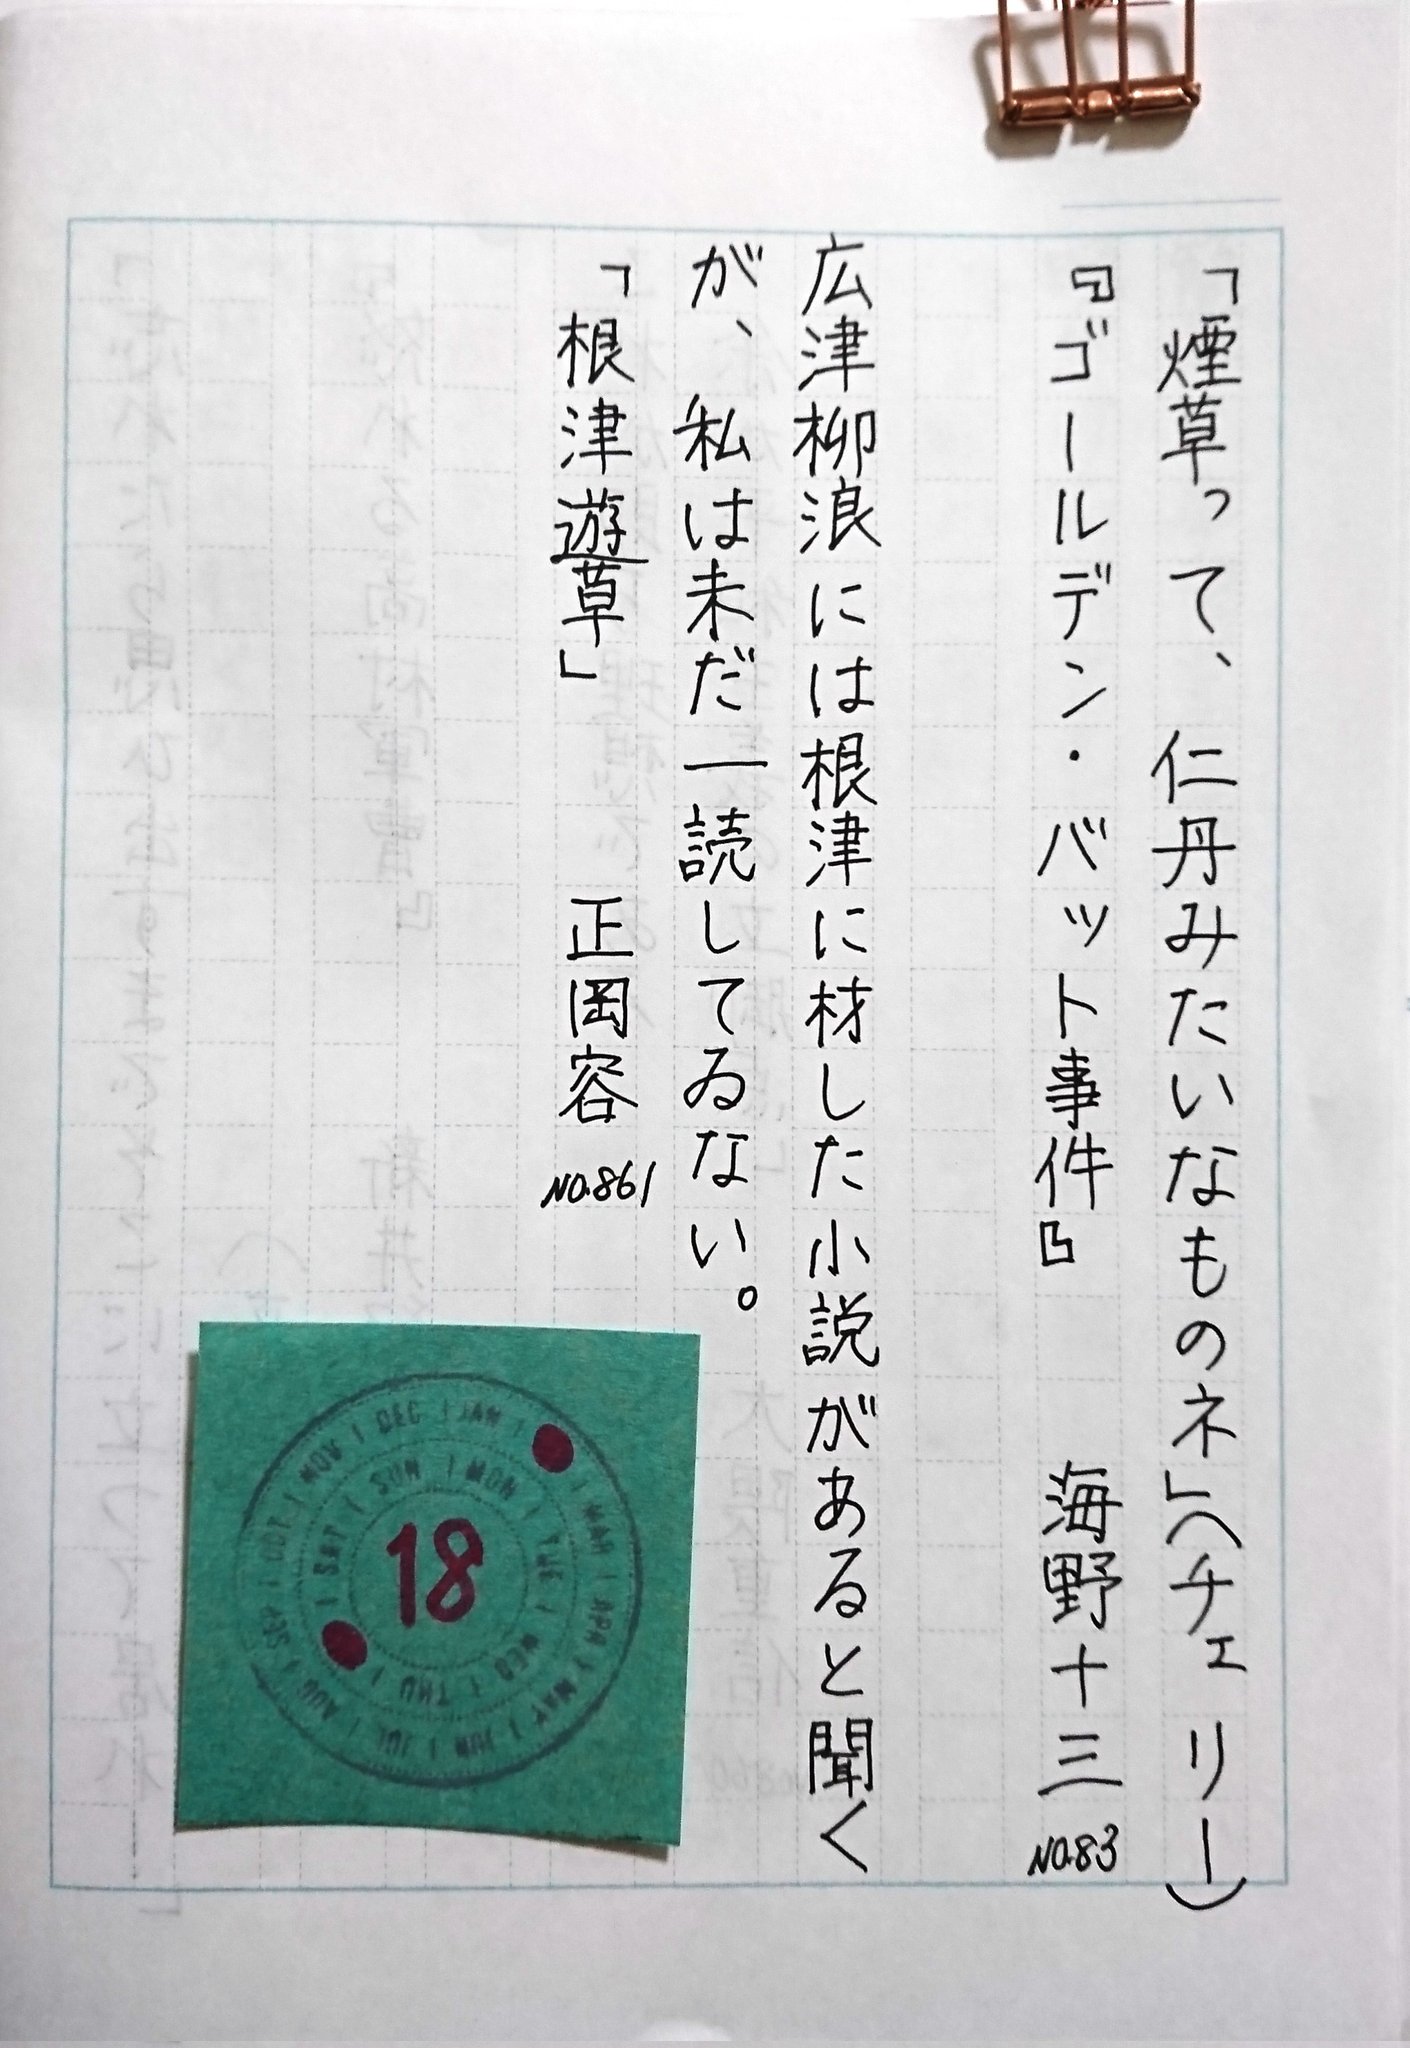 「煙草って、仁丹みたいなものネ」(チェリー)
『ゴールデン・バット事件』 海野十三 NO.83
広津柳浪には根津に材した小説があると聞く
が、私は未だ一読してゐない。
「根津遊草」 正岡容 NO.861
DEC JAN MAR APR MAY JUN JUL AUG SEP OCT NOV
SUN MON TUE WED THU SAT
18